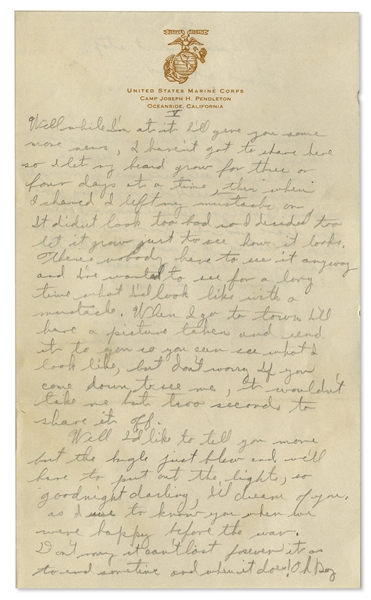 UNITED STATES MARINE CORPS
CAMP JOSEPH H. PENDLETON
OCEANSIDE, CALIFORNIA
V
Well while I'm at it I'll give you some
more news, I haven't got to shave here
so I let my beard grow for three or
four days at a time, then when
I shaved I left my mustache on
It didn't look too bad so I decided too
let it grow just to see how it looks.
There's nobody here to see it anyway
and I've wanted to see for a long
time what I'd look like with a
mustache. When I go to town I'll
have a picture taken and send
it to you so you can see what I
look like, but don't worry if you
come down to see me, it wouldn't
take me but two seconds to
shave it off.
Well I'd like to tell you more
but the bugle just blew and we'll
have to put out the lights, so
goodnight darling, I'll dream of you,
as I use to know you when we
were happy before the war.
Don't worry it can't last forever it has
to end sometime and when it does! Oh Boy